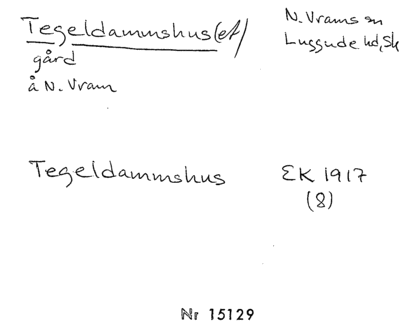 Tegeldammshus(et)
gård
å N. Vram
N. Vrams sn
Luggude hd, Sk
Tegeldammshus
EK 1917
(8)
Nr 15129